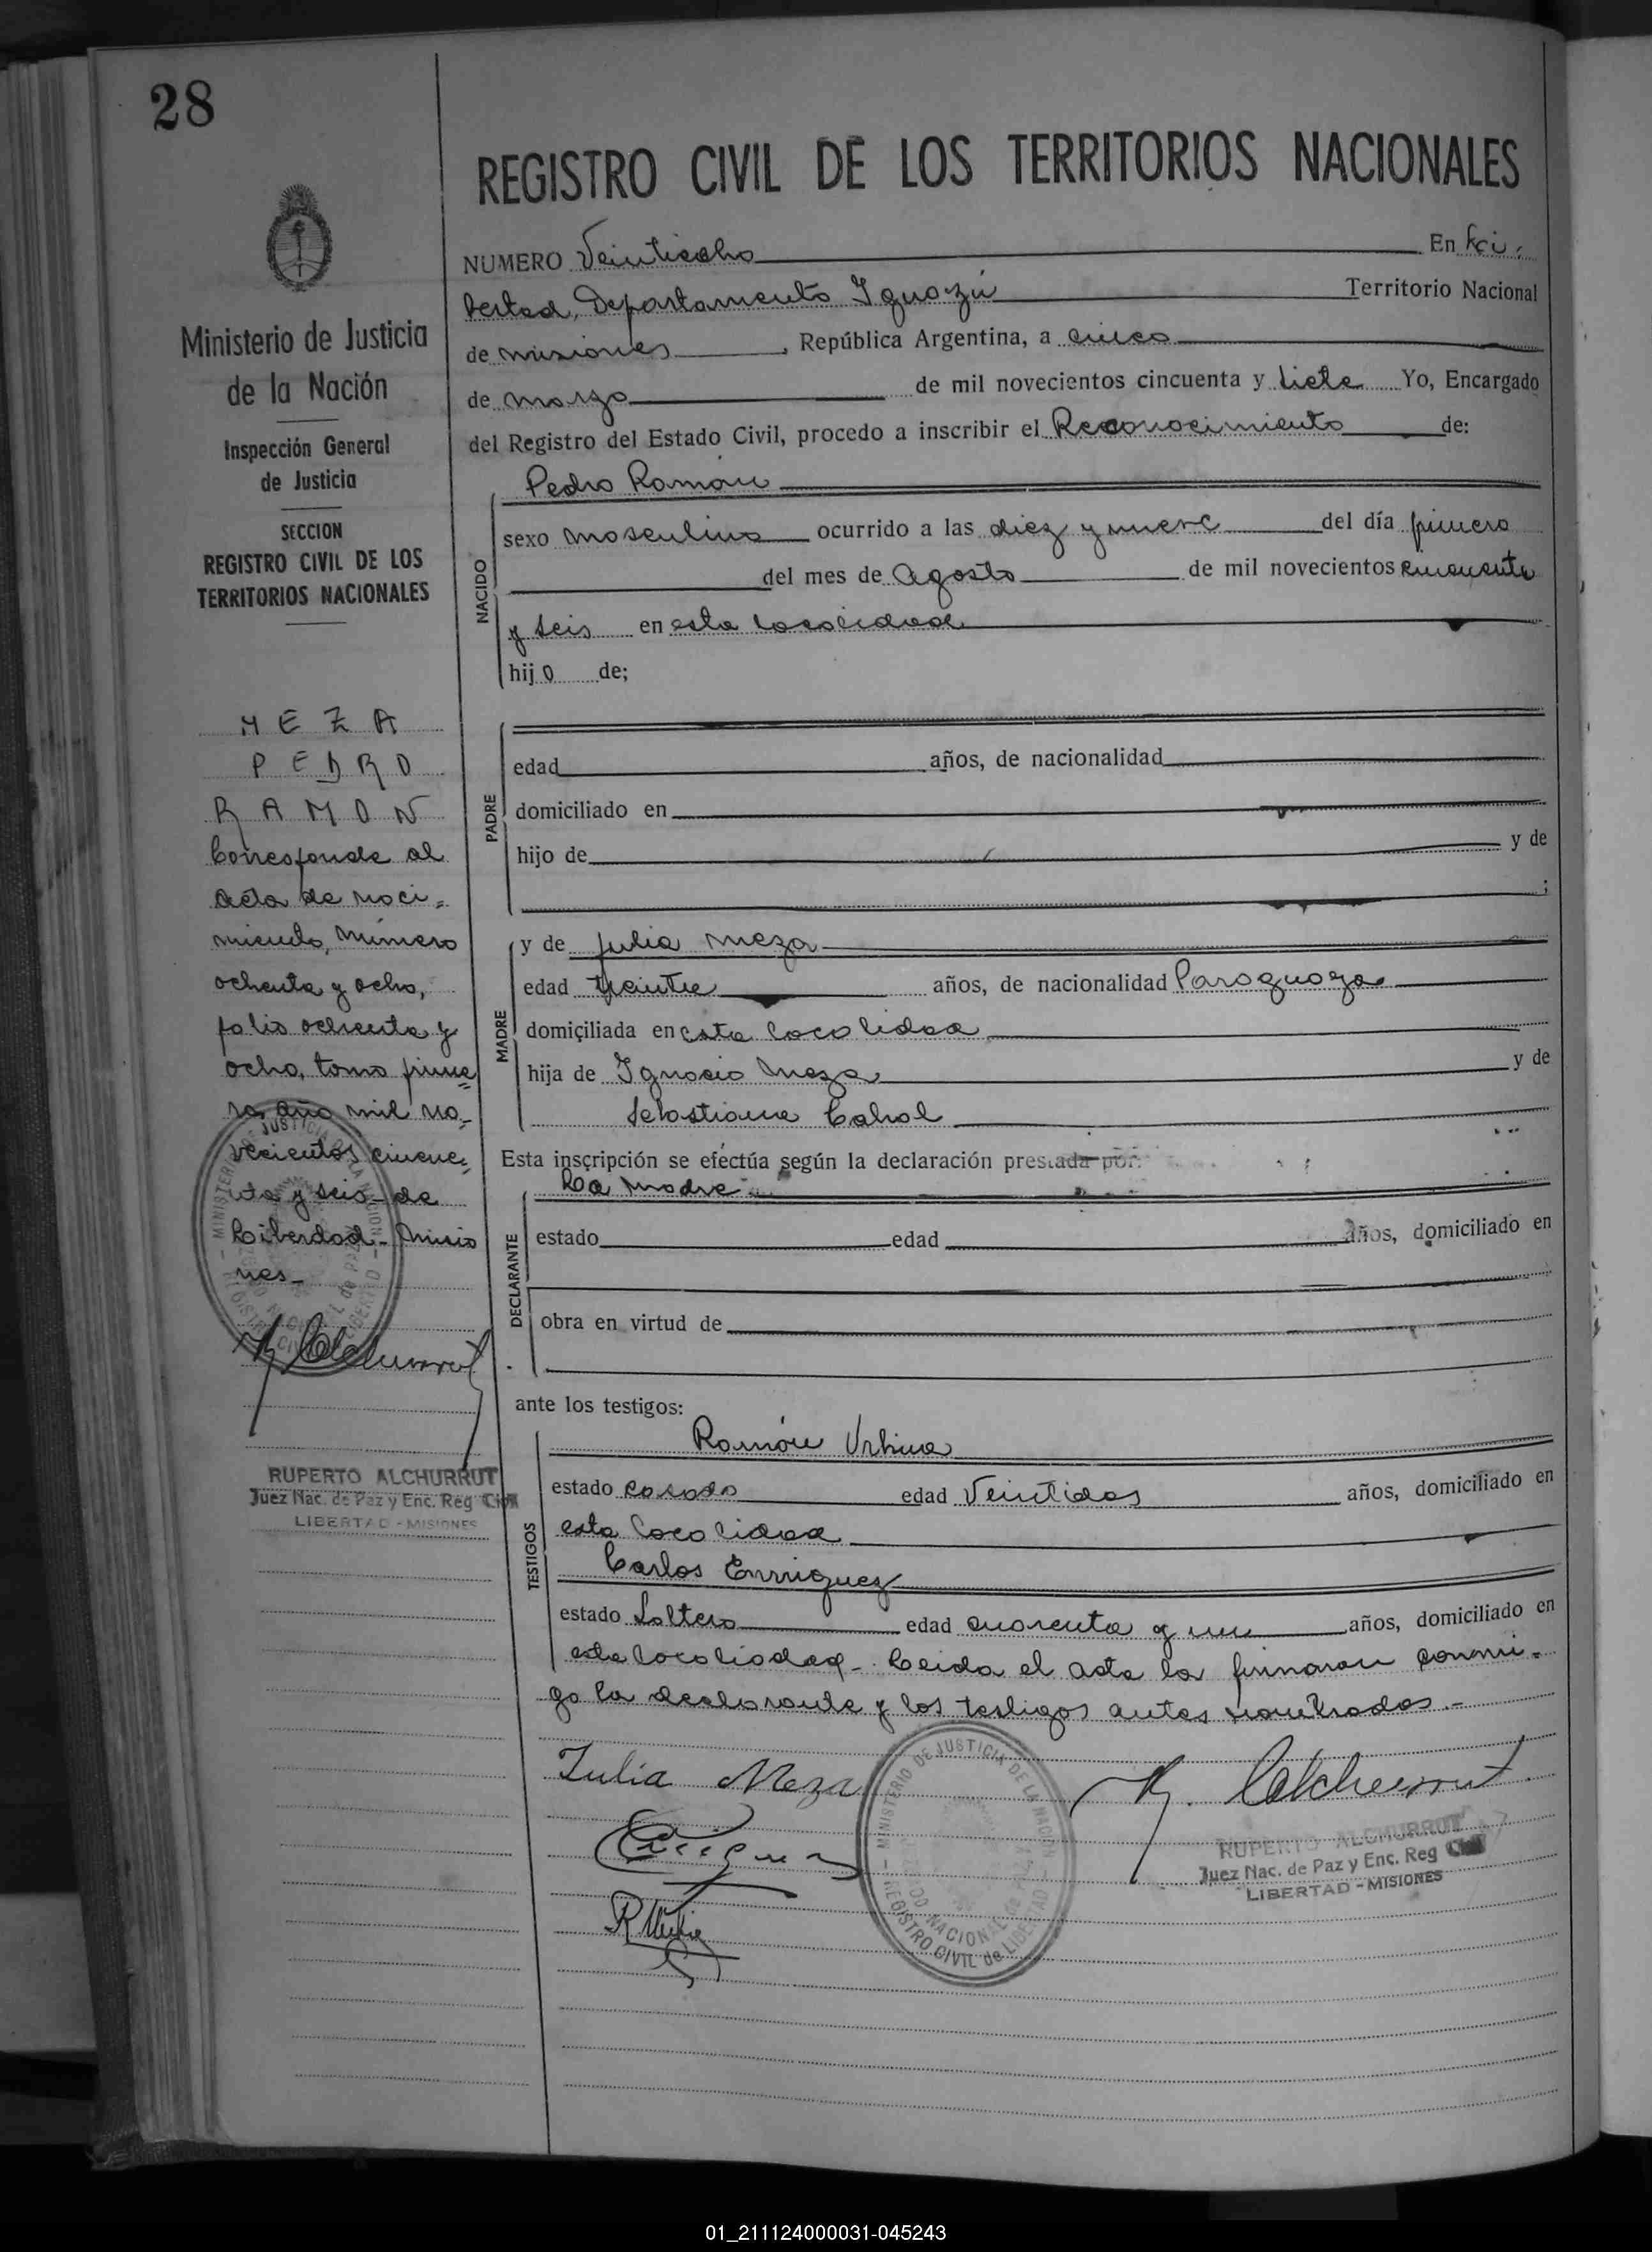 28
REGISTRO CIVIL DE LOS TERRITORIOS NACIONALES
NUMERO Veintiocho En Li,
bertad, Departamento Iguazú Territorio Nacional
de misiones, República Argentina, a cinco
de marzo de mil novecientos cincuenta y siete Yo, Encargado
del Registro del Estado Civil, procedo a inscribir el Reconocimiento de:
Ministerio de Justicia
de la Nación
Inspección General
de Justicia
SECCION
REGISTRO CIVIL DE LOS
TERRITORIOS NACIONALES
NACIDO
Pedro Ramón
sexo masculino ocurrido a las diez y nueve del día primero
del mes de Agosto de mil novecientos cincuenta
y seis en esta localidad
hijo de;
MEZA
PEDRO
RAMON
Corresponde al
acta de naci=
miento, número
ochenta y ocho,
folio ochenta y
ocho, tomo prime=
ro, año mil no=
vecientos cincuen=
ta y seis - de
Libertad - Misio
nes -
R. Alchurrut
RUPERTO ALCHURRUT
Juez Nac. de Paz y Enc. Reg Civil
LIBERTAD - MISIONES
PADRE
edad años, de nacionalidad
domiciliado en
hijo de y de
;
MADRE
y de Julia Meza
edad treinta años, de nacionalidad Paraguaya
domiciliada en esta localidad
hija de Ignacio Meza y de
Sebastiana Cabral
Esta inscripción se efectúa según la declaración prestada por:
DECLARANTE
La madre
estado edad años, domiciliado en
obra en virtud de
ante los testigos:
TESTIGOS
Ramón Urbina
estado casado edad Veintidos años, domiciliado en
esta localidad
Carlos Enrriquez
estado Soltero edad cuarenta y un años, domiciliado en
esta localidad - Leida el acta la firmaron conmi=
go la declarante y los testigos antes nombrados -
Julia Meza
R. Alchurrut
MINISTERIO DE JUSTICIA DE LA NACION
JUZGADO NACIONAL de PAZ
REGISTRO CIVIL de LIBERTAD
RUPERTO ALCHURRUT
Juez Nac. de Paz y Enc. Reg Civil
LIBERTAD - MISIONES
01_211124000031-045243